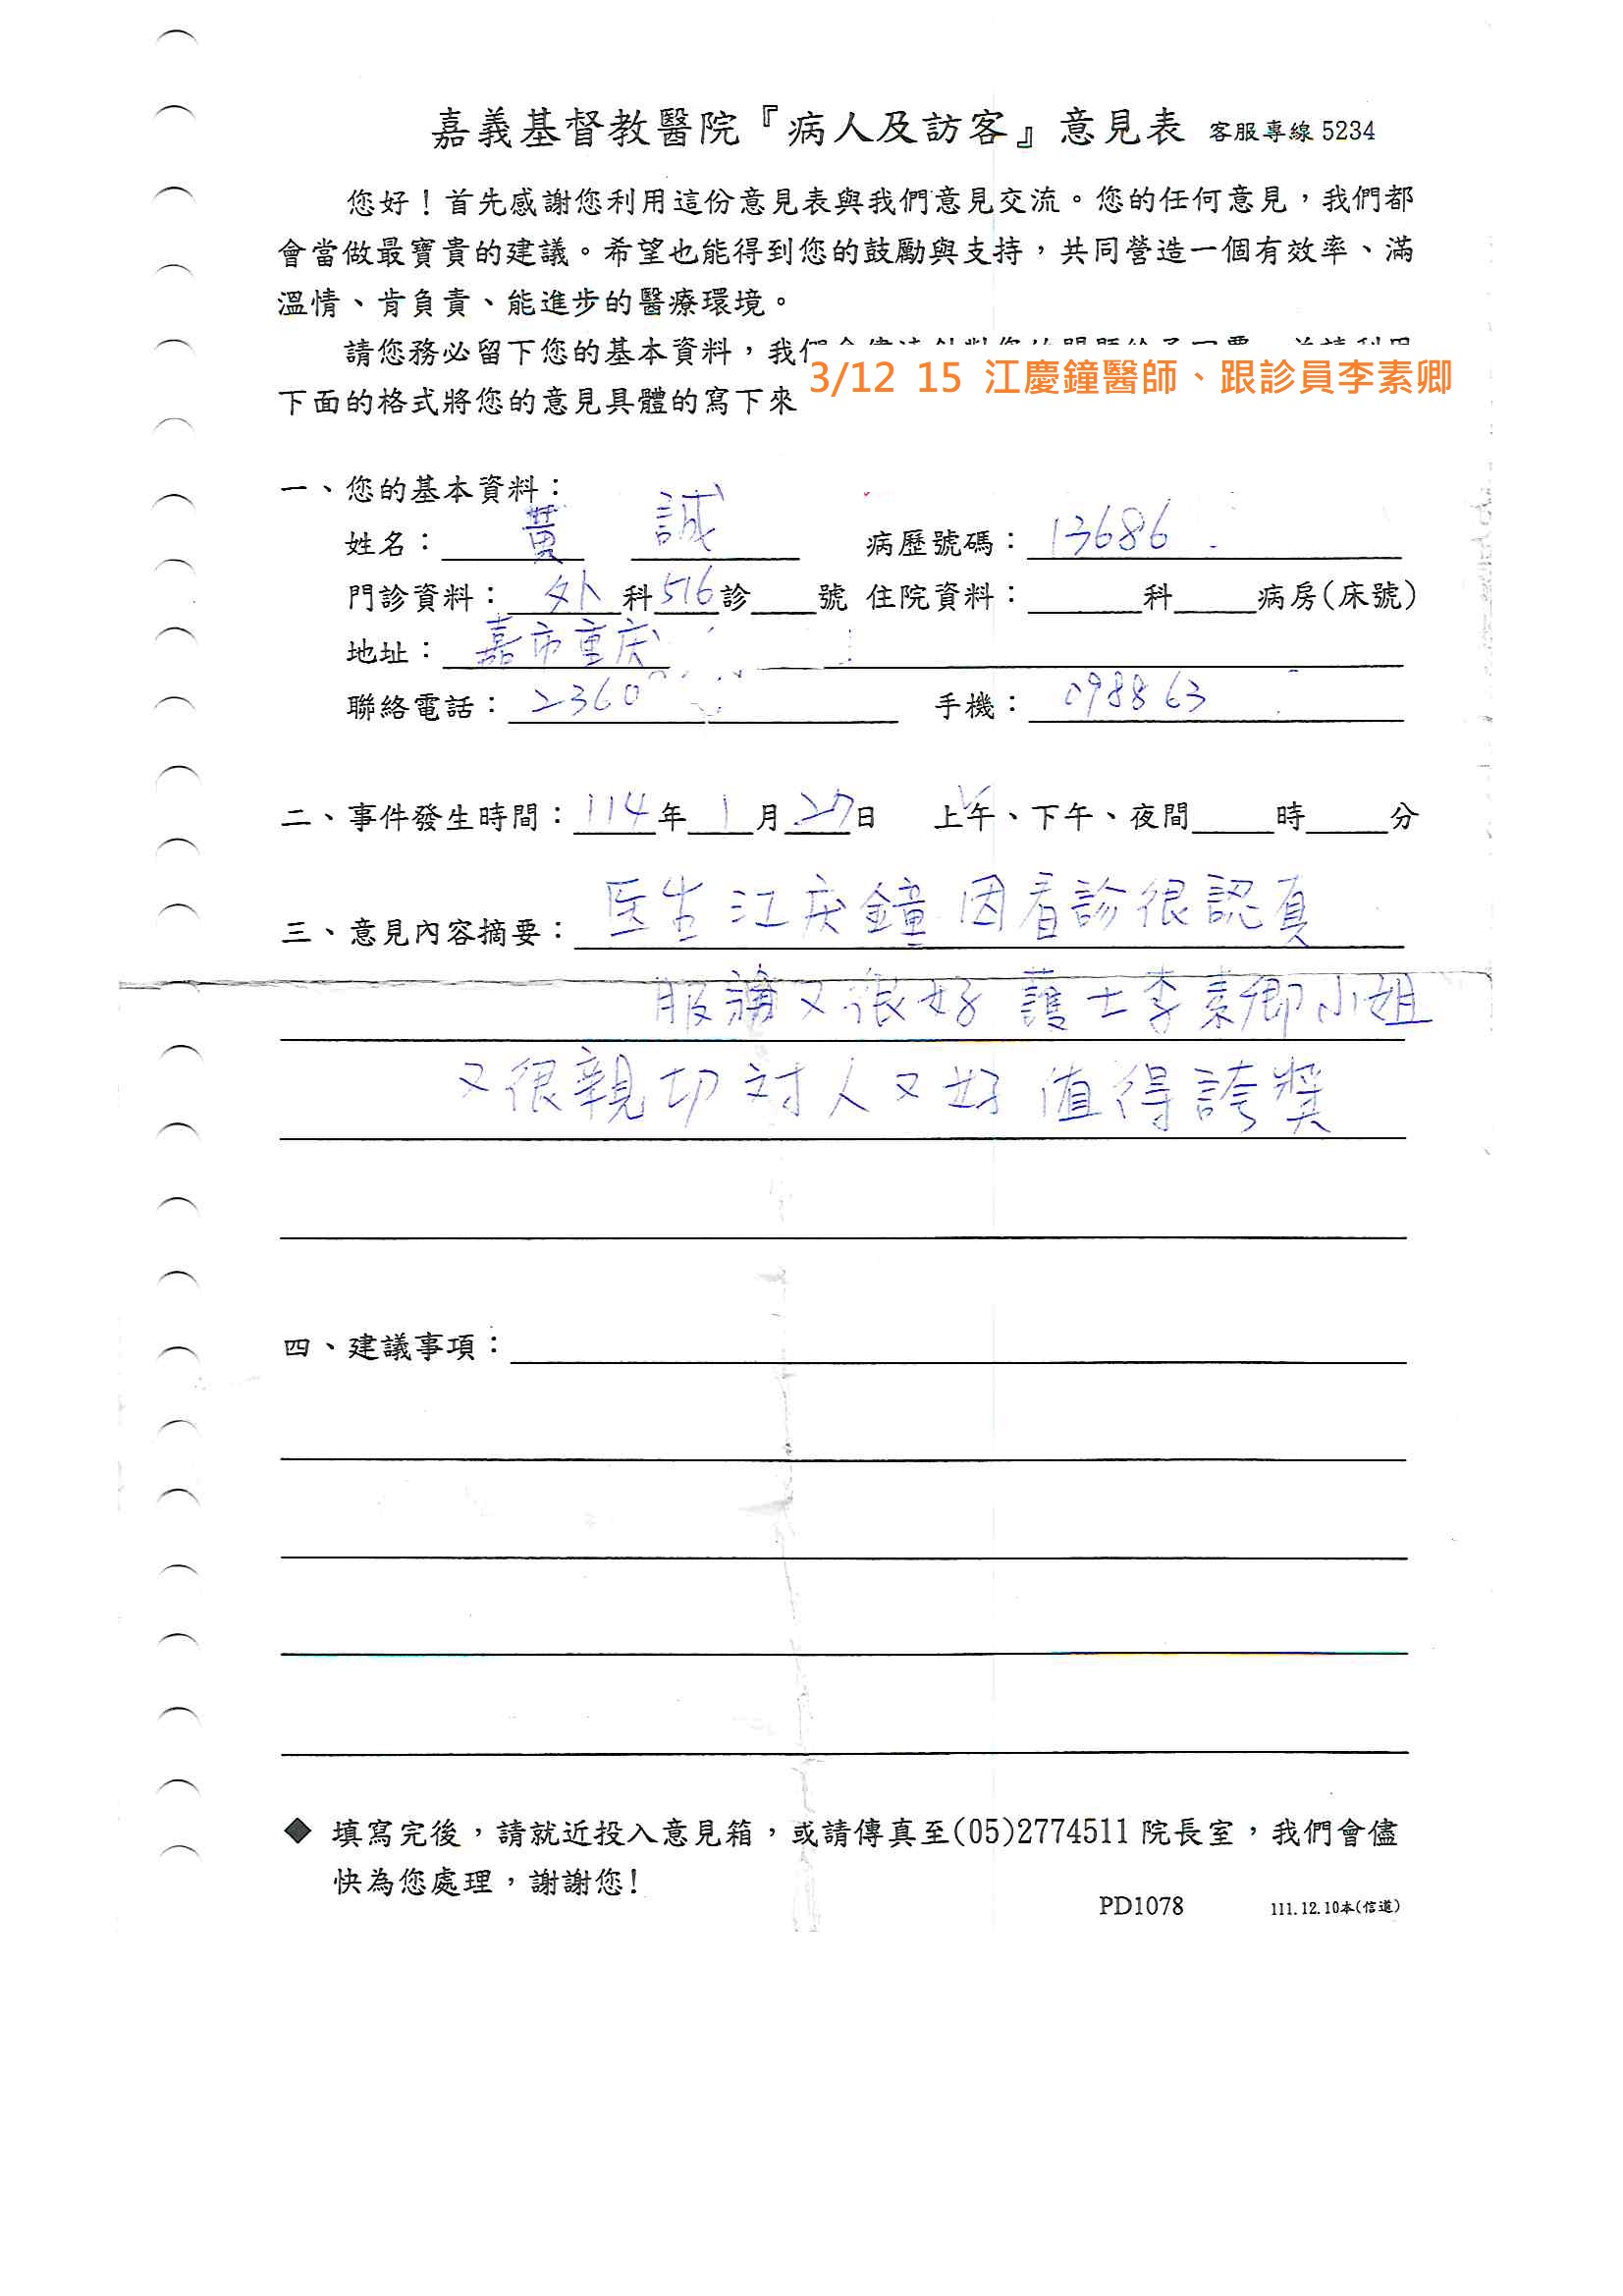 嘉義基督教醫院『病人及訪客』意見表 客服專線 5234
您好！首先感謝您利用這份意見表與我們意見交流。您的任何意見，我們都
會當做最寶貴的建議。希望也能得到您的鼓勵與支持，共同營造一個有效率、滿
溫情、肯負責、能進步的醫療環境。
請您務必留下您的基本資料，我們
3/12 15 江慶鐘醫師、跟診員李素卿
下面的格式將您的意見具體的寫下來
一、您的基本資料：
姓名：黃 誠 病歷號碼：13686
門診資料：外科516診 號 住院資料： 科 病房(床號)
地址：嘉市重庆
聯絡電話：2360 手機：098863
二、事件發生時間：114年1月27日 上午、下午、夜間 時 分
三、意見內容摘要：医生江庆鐘因看診很認真
服務又很好 護士李素卿小姐
又很親切对人又好 值得誇獎
四、建議事項：
◆ 填寫完後，請就近投入意見箱，或請傳真至(05)2774511 院長室，我們會儘
快為您處理，謝謝您!
PD1078 111.12.10本(信道)